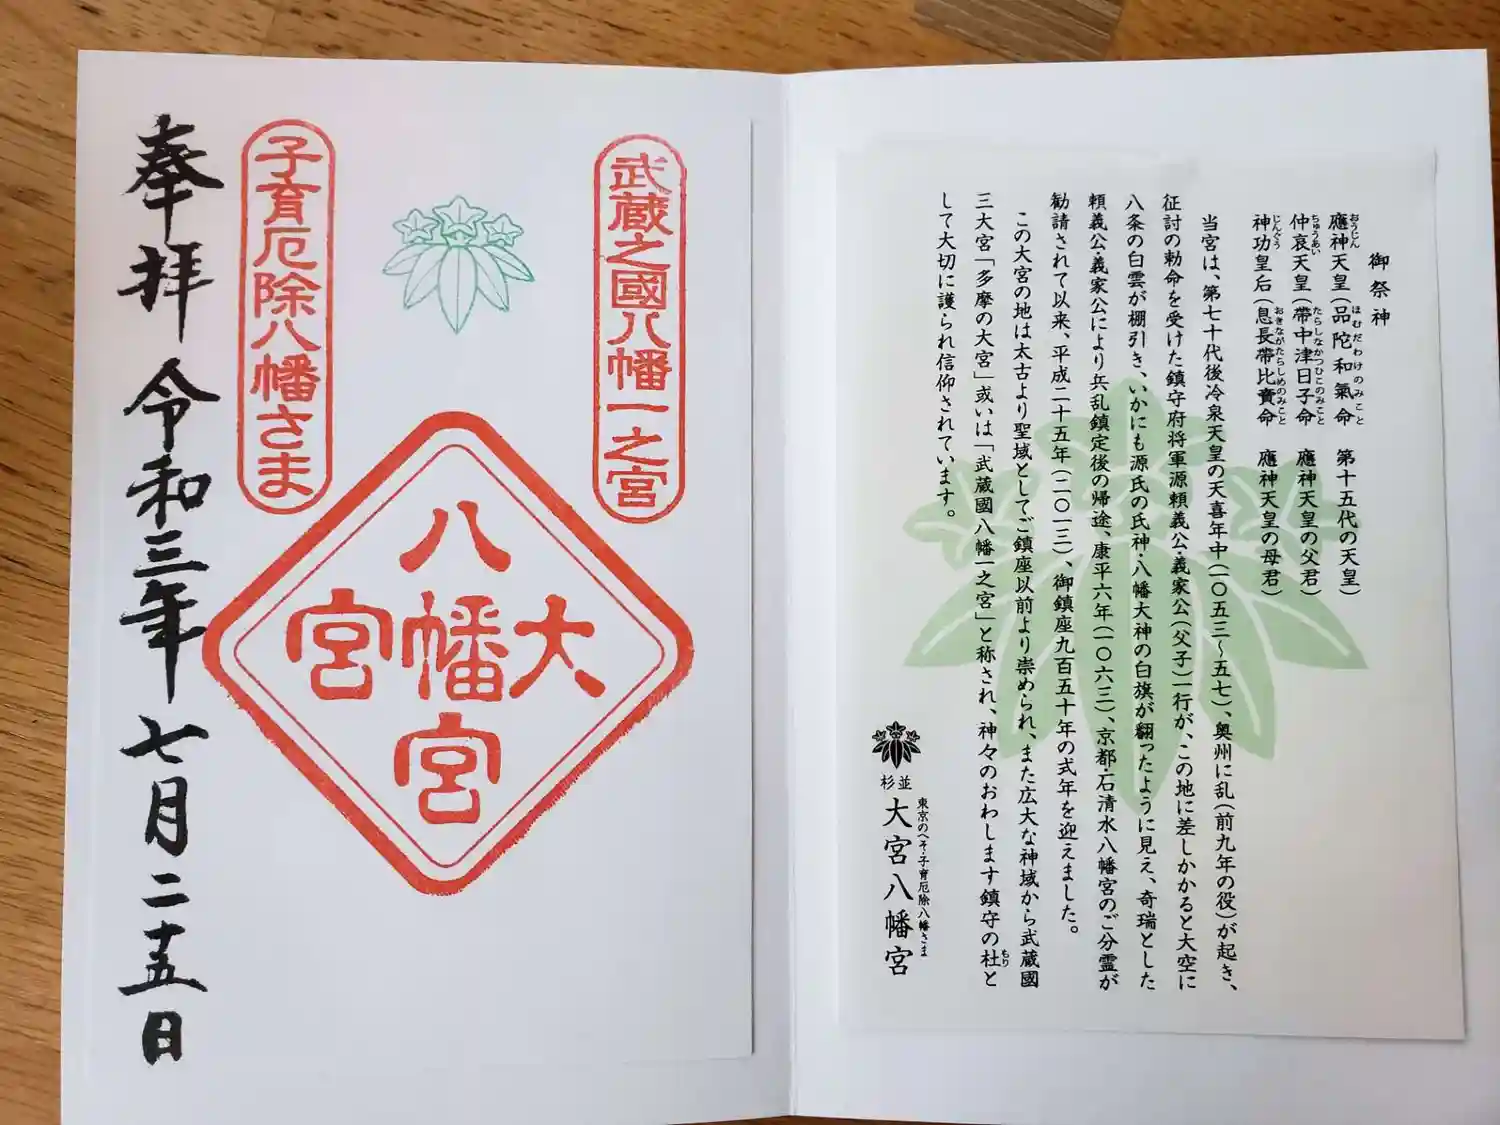 御祭神
應神天皇（品陀和氣命　第十五代の天皇）
おうじん　ほむだわけのみこと
仲哀天皇（帶中津日子命　應神天皇の父君）
ちゅうあい　たらしなかつひこのみこと
神功皇后（息長帶比賣命　應神天皇の母君）
じんぐう　おきながたらしめのみこと
当宮は、第七十代後冷泉天皇の天喜年中（一〇五三～五七）、奥州に乱（前九年の役）が起き、
征討の勅命を受けた鎮守府将軍源頼義公・義家公（父子）一行が、この地に差しかかると大空に
八条の白雲が棚引き、いかにも源氏の氏神・八幡大神の白旗が翻ったように見え、奇瑞とした
頼義公・義家公により兵乱鎮定後の帰途、康平六年（一〇六三）、京都・石清水八幡宮のご分霊が
勧請されて以来、平成二十五年（二〇一三）、御鎮座九百五十年の式年を迎えました。
この大宮の地は太古より聖域としてご鎮座以前より崇められ、また広大な神域から武蔵國
三大宮「多摩の大宮」或いは「武蔵國八幡一之宮」と称され、神々のおわします鎮守の杜と
もり
して大切に護られ信仰されています。
東京のへそ・子育厄除八幡さま
杉並
大宮八幡宮
武蔵之國八幡一之宮
八幡宮
大幡宮
子育厄除八幡さま
奉拝　令和三年七月二十五日